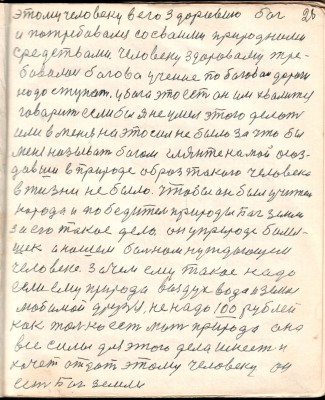 этому человеку в его здоровию бог 25
и потребавали со своими природными
средствами. Человеку здоровому тре-
бовали богова учение по боговай дороги
надо ступат. у бога это ест он им хвалится
говарит если бы я не имел этого делат
или в меня на это сил не было за что бы
меня называт богом глянте на мой созд-
давши в природе образ такого человека
в жизни не было. Чтобы он был учител
народа и победител природы бог земли
за его такое дело он у природе был и-
щек а нашем балном нуждающем
человеке. Зачем ему такое надо
если ему природа воздух вода и земля
мои милой друзя, не надо 100 рублей
как только ест мат природа она
все силы для этого дела имеет и
хочет отдат этому человеку он
ест Бог земли